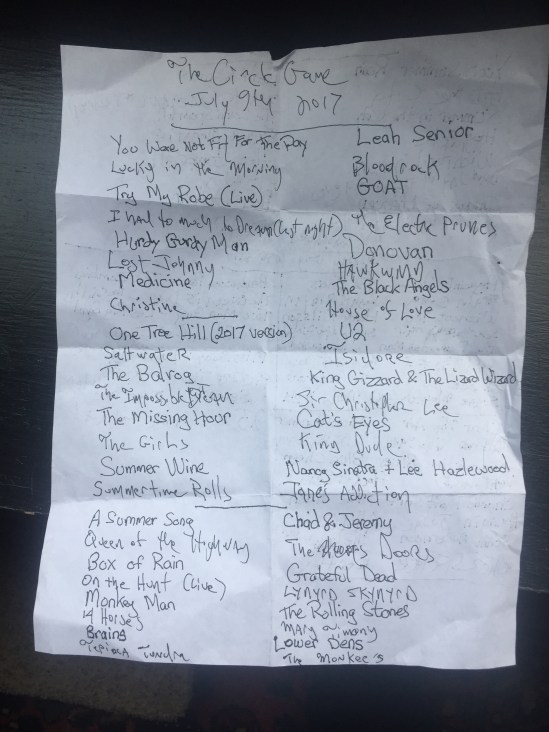 The Circle Game
July 9th 2017
You Were Not Fit For The Day Leah Senior
Lucky in the Morning Bloodrock
Try My Robe (Live) GOAT
I had to much to Dream (last night) The Electric Prunes
Hurdy Gurdy Man Donovan
Lost Johnny HAWKWIND
Medicine The Black Angels
Christine House of Love
One Tree Hill (2017 version) U2
Saltwater Isidore
The Balrog King Gizzard & The Lizard Wizard
The Impossible Dream Sir Christopher Lee
The Missing Hour Cat's Eyes
The Girls King Dude
Summer Wine Nancy Sinatra + Lee Hazlewood
Summertime Rolls Jane's Addiction
A Summer Song Chad & Jeremy
Queen of the Highway The Doors
Box of Rain Grateful Dead
On the Hunt (Live) LYNYRD SKYNYRD
Monkey Man The Rolling Stones
14 Horses Mary Timony
Brains Lower Dens
Tapioca Tundra The Monkee's